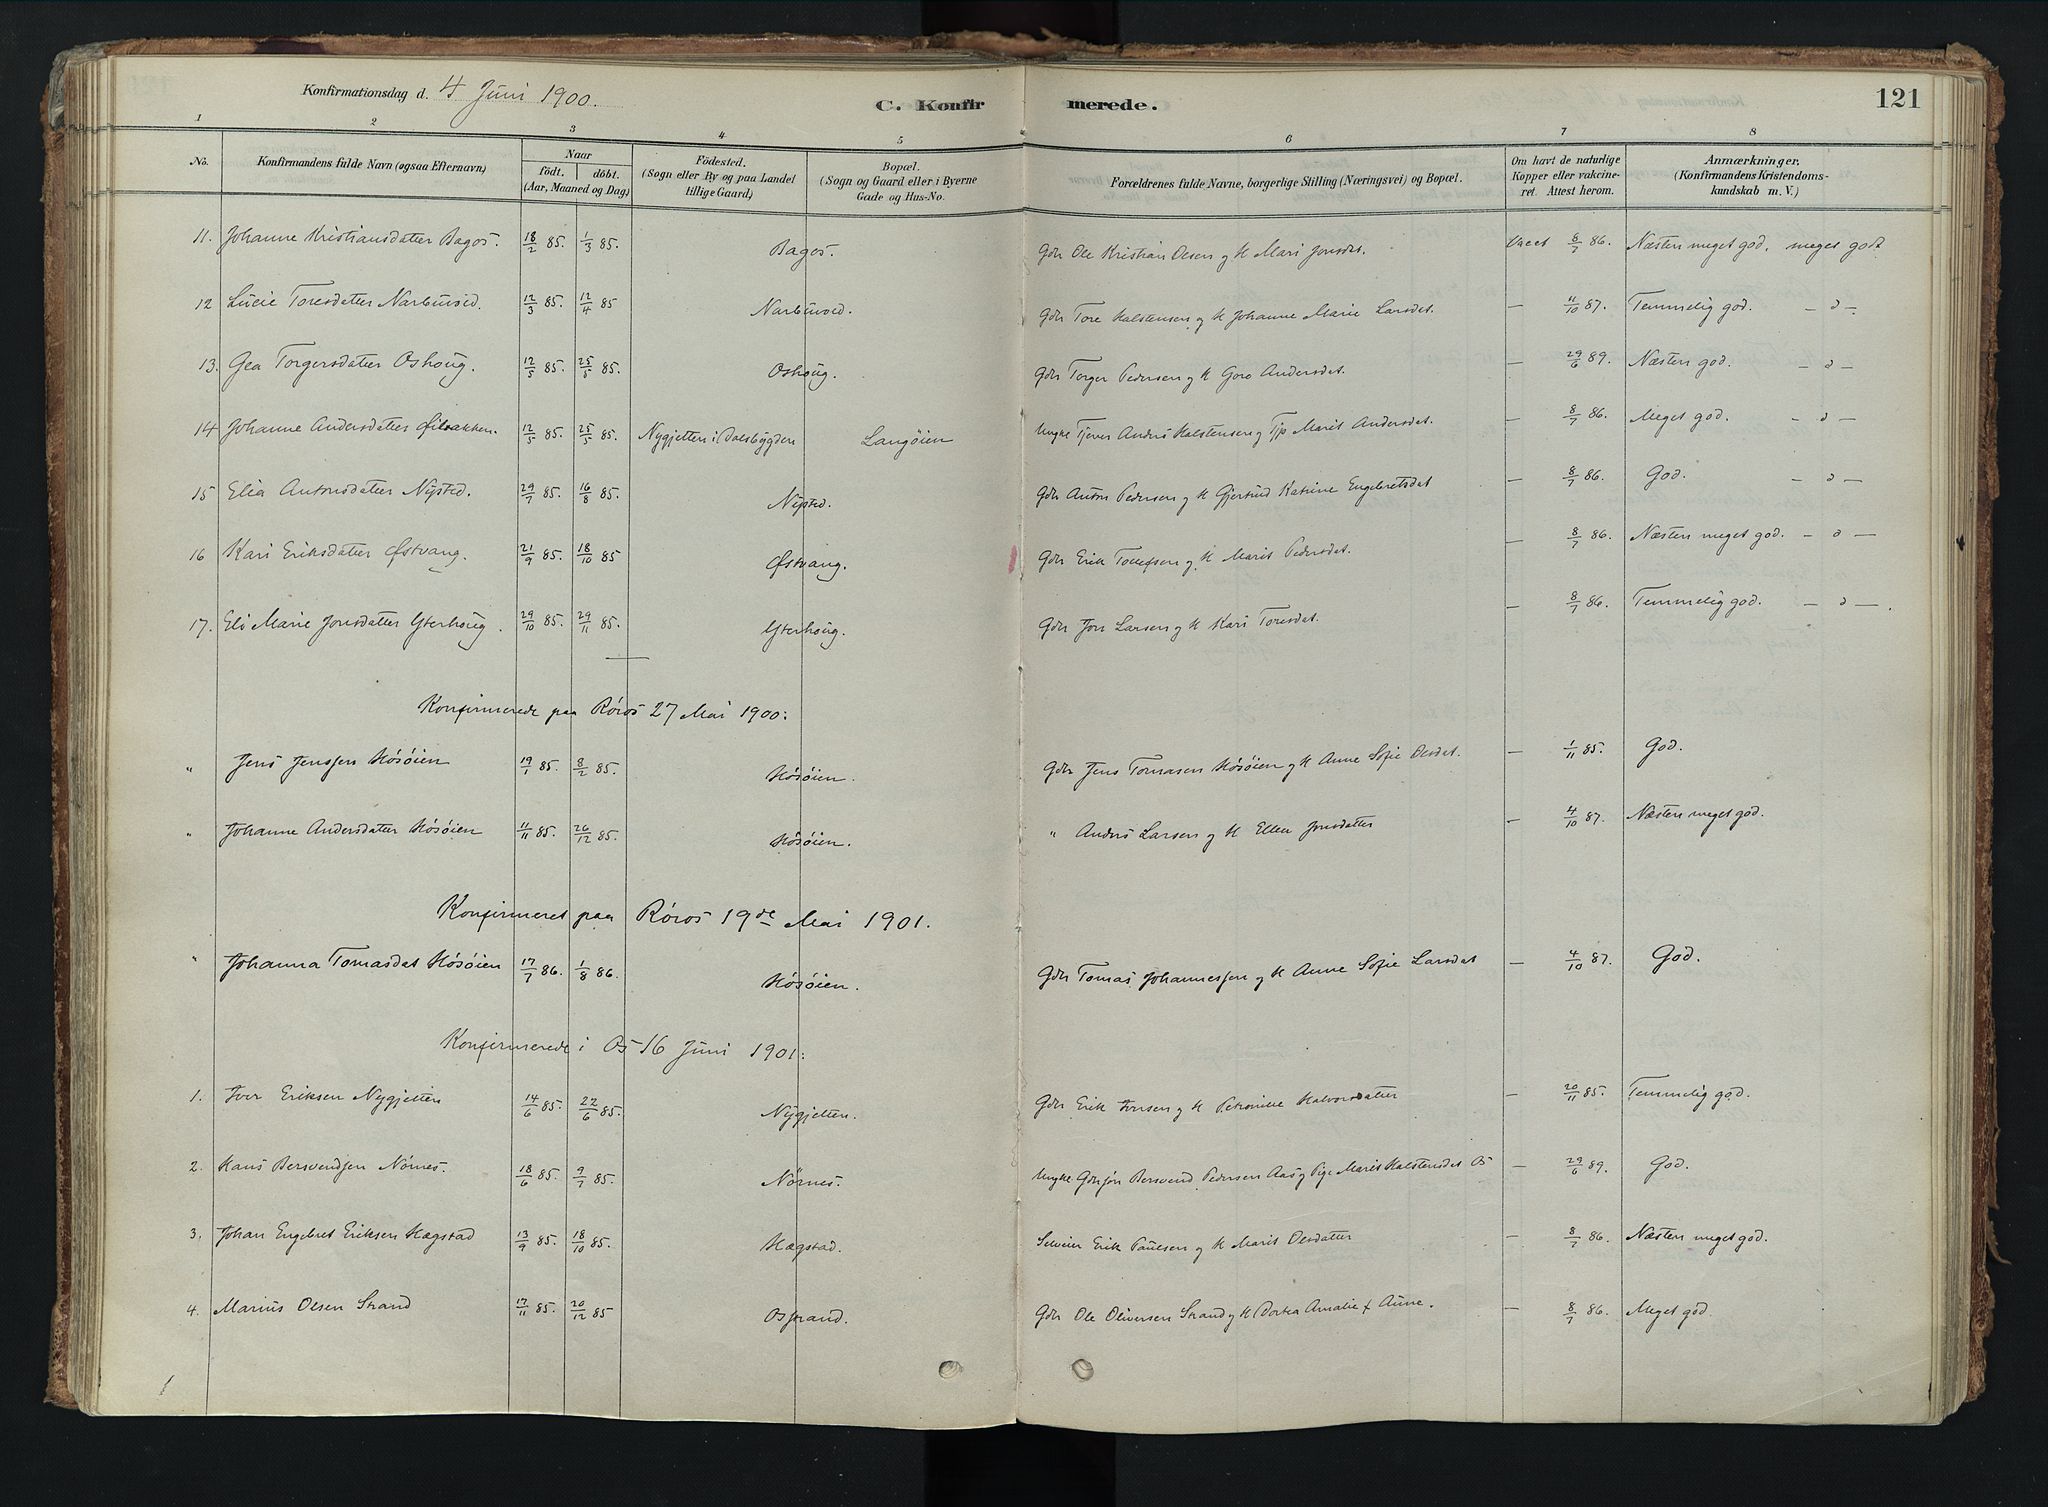 Konfirmationsdag d. 4 Juni 1900.
C. Konfirmerede.
121
1 2 3 4 5 6 7 8
No.
Konfirmandens fulde Navn (ogsaa Efternavn)
Naar
födt. döbt.
(Aar, Maaned og Dag)
Födested.
(Sogn eller By og paa Landet tillige Gaard)
Bopæl.
(Sogn og Gaard eller i Byerne Gade og Hus-No.
Forældrenes fulde Navne, borgerlige Stilling (Næringsvei) og Bopæl.
Om havt de naturlige Kopper eller vakcineret. Attest herom.
Anmærkninger.
(Konfirmandens Kristendomskundskab m. V.)
11. Johanne Kristiansdatter Bagos. 18/2 85. 1/3 85. Bagos. Gdr Ole Kristian Olsen og H Mari Jonsdat. Vacct 8/7 86. Næsten meget god. meget godt
12 Lucie Toresdatter Narbuvold. 12/3 85. 12/4 85 Narbuvold. Gdr Tore Halstensen og H Johanne Marie Larsdat. — 11/10 87. Temmelig god. — " —
13. Gea Torgersdatter Oshoug. 12/5 85. 25/5 85. Oshoug. Gdr Torger Pedersen og H Goro Andersdat. — 29/6 89. Næsten god. — " —
14 Johanne Andersdatter 12/5 85. 25/5 85. Nygjetten i Dalsbygden Langøien Ungkl Tjener Anders Halstensen og Tjp Marit Andersdat. — 8/7 86. Meget god. — " —
15 Elia Antonsdatter Nysted. 29/7 85. 16/8 85. Nysted. Gdr Anton Pedersen og H Gjertrud Katrine Engebretsdat — 8/7 86. God. — " —
16 Kari Eriksdatter Østvang. 21/9 85. 18/10 85 Østvang. Gdr Erik Tollefsen og H Marit Pedersdat. — 8/7 86. Næsten meget god. — " —
17. Eli Marie Jonsdatter Yterhoug. 29/10 85. 29/11 85. Yterhoug. Gdr Jon Larsen og H Kari Toresdat. — 8/7 86. Temmelig god. — " —.
Konfirmerede paa Røros 27 Mai 1900:
" Jens Jenssen Høsøien 19/1 85. 8/2 85. Høsøien. Gdr Jens Tomasen Høsøien og H Anne Sofie Olsdat. — 1/11 85. God.
" Johanne Andersdatter Høsøien 11/11 85. 26/12 85. Høsøien. " Anders Larsen og H Ellen Jonsdatter — 4/10 87. Næsten meget god.
Konfirmeret paa Røros 19de Mai 1901.
" Johanna Tomasdat Høsøien 17/7 86. 1/8 86. Høsøien. Gdr Tomas Johannessen og H Anne Sofie Larsdat — 4/10 87. God.
Konfirmerede i Os 16 Juni 1901:
1. Iver Eriksen Nygjetten 14/6 85. 22/6 85. Nygjetten. Gdr Erik og H Petronille Halvorsdatter — 20/11 85. Temmelig god.
2. Hans Bersvendsen Nørnes. 18/6 85. 9/7 85. Nørnes. Ungkl Bersvend Pedersen Aas og Pige Marit Halstensdat Os — 29/6 89. God.
3. Johan Engebret Eriksen Hægstad 13/9 85. 18/10 85. Hægstad. Selveier Erik Paulsen og H Marit Olsdatter — 8/7 86. Næsten meget god.
4. Marius Olsen Strand 17/11 85. 20/12 85 Osstrand. Gdr Ole Oliversen Strand og H Dortea Amalie f Aune. — 8/7 86. Meget god.